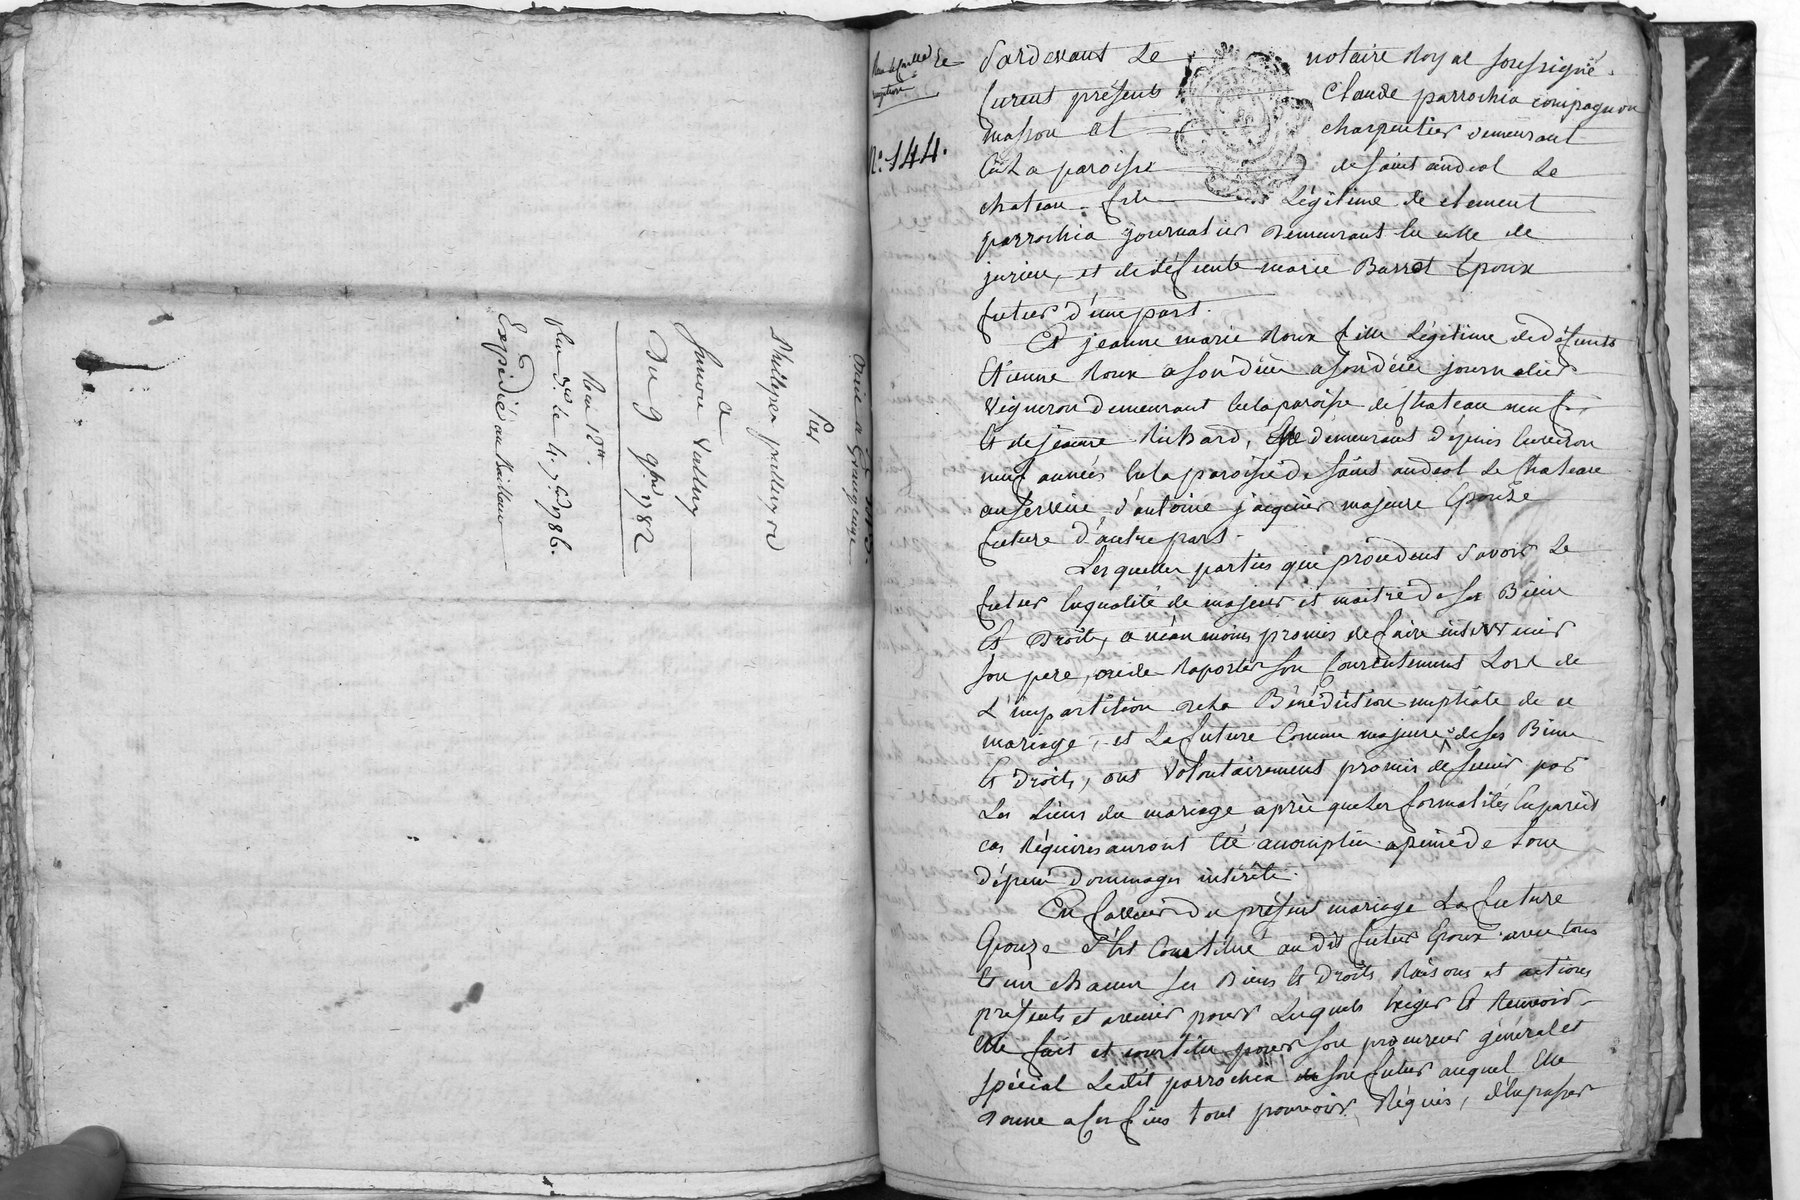 Par
Phillipon
a
Simon Vallery
Du 9 9bre 1782
Expédié au
N.° 144.
Pardevant Le notaire Royal soussigné
furent présents Claude parrochia compagnon
masson et charpentier demeurant
En La paroisse de saint andeol Le
chateau fils Légitime de clement
parrochia journalier demeurant En ville de
jurieu, et de défunte marie Barrot Epoux
futur d'une part.
Et jeanne marie Roux fille Légitime de défunts
Etienne Roux a son décè a son décé journalier
Vigneron demeurant En la paroisse de chateau neuf,
Et de jeanne Richard, Elle demeurant depuis Environ
neuf années En la paroisse de saint andeol Le Chateau
au service d'antoine jacquier majeure Epouze
future d'autre part.
Lesquelles parties qui procedent savoir Le
futur En qualité de majeur et maitre de ses Biens
Et Droits, a néan moins promis de faire intervenir
son pere, ou de Raporter son Consentement Lors de
L'impartition de La Bénédiction nuptiale de ce
mariage, et La future Comme majeure de ses Biens
Et Droits, ont volontairement promis de s'unir par
Les Liens du mariage après que Les formalités En pareil
cas Réquises auront Eté accomplies a peine de tous
dépens dommages intérêts.
En faveur du présent mariage La future
Epouze s'Est Constitué au dit futur Epoux avec tous
Et un chacun ses Biens Et Droits Raisons et actions
présents et avenir pour Lesquels Exiger Et Recevoir
Elle fait et constitue pour son procureur général et
spécial Ledit parrochia son futur auquel Elle
donne a ces fins tout pouvoir Réquis, d'En passer